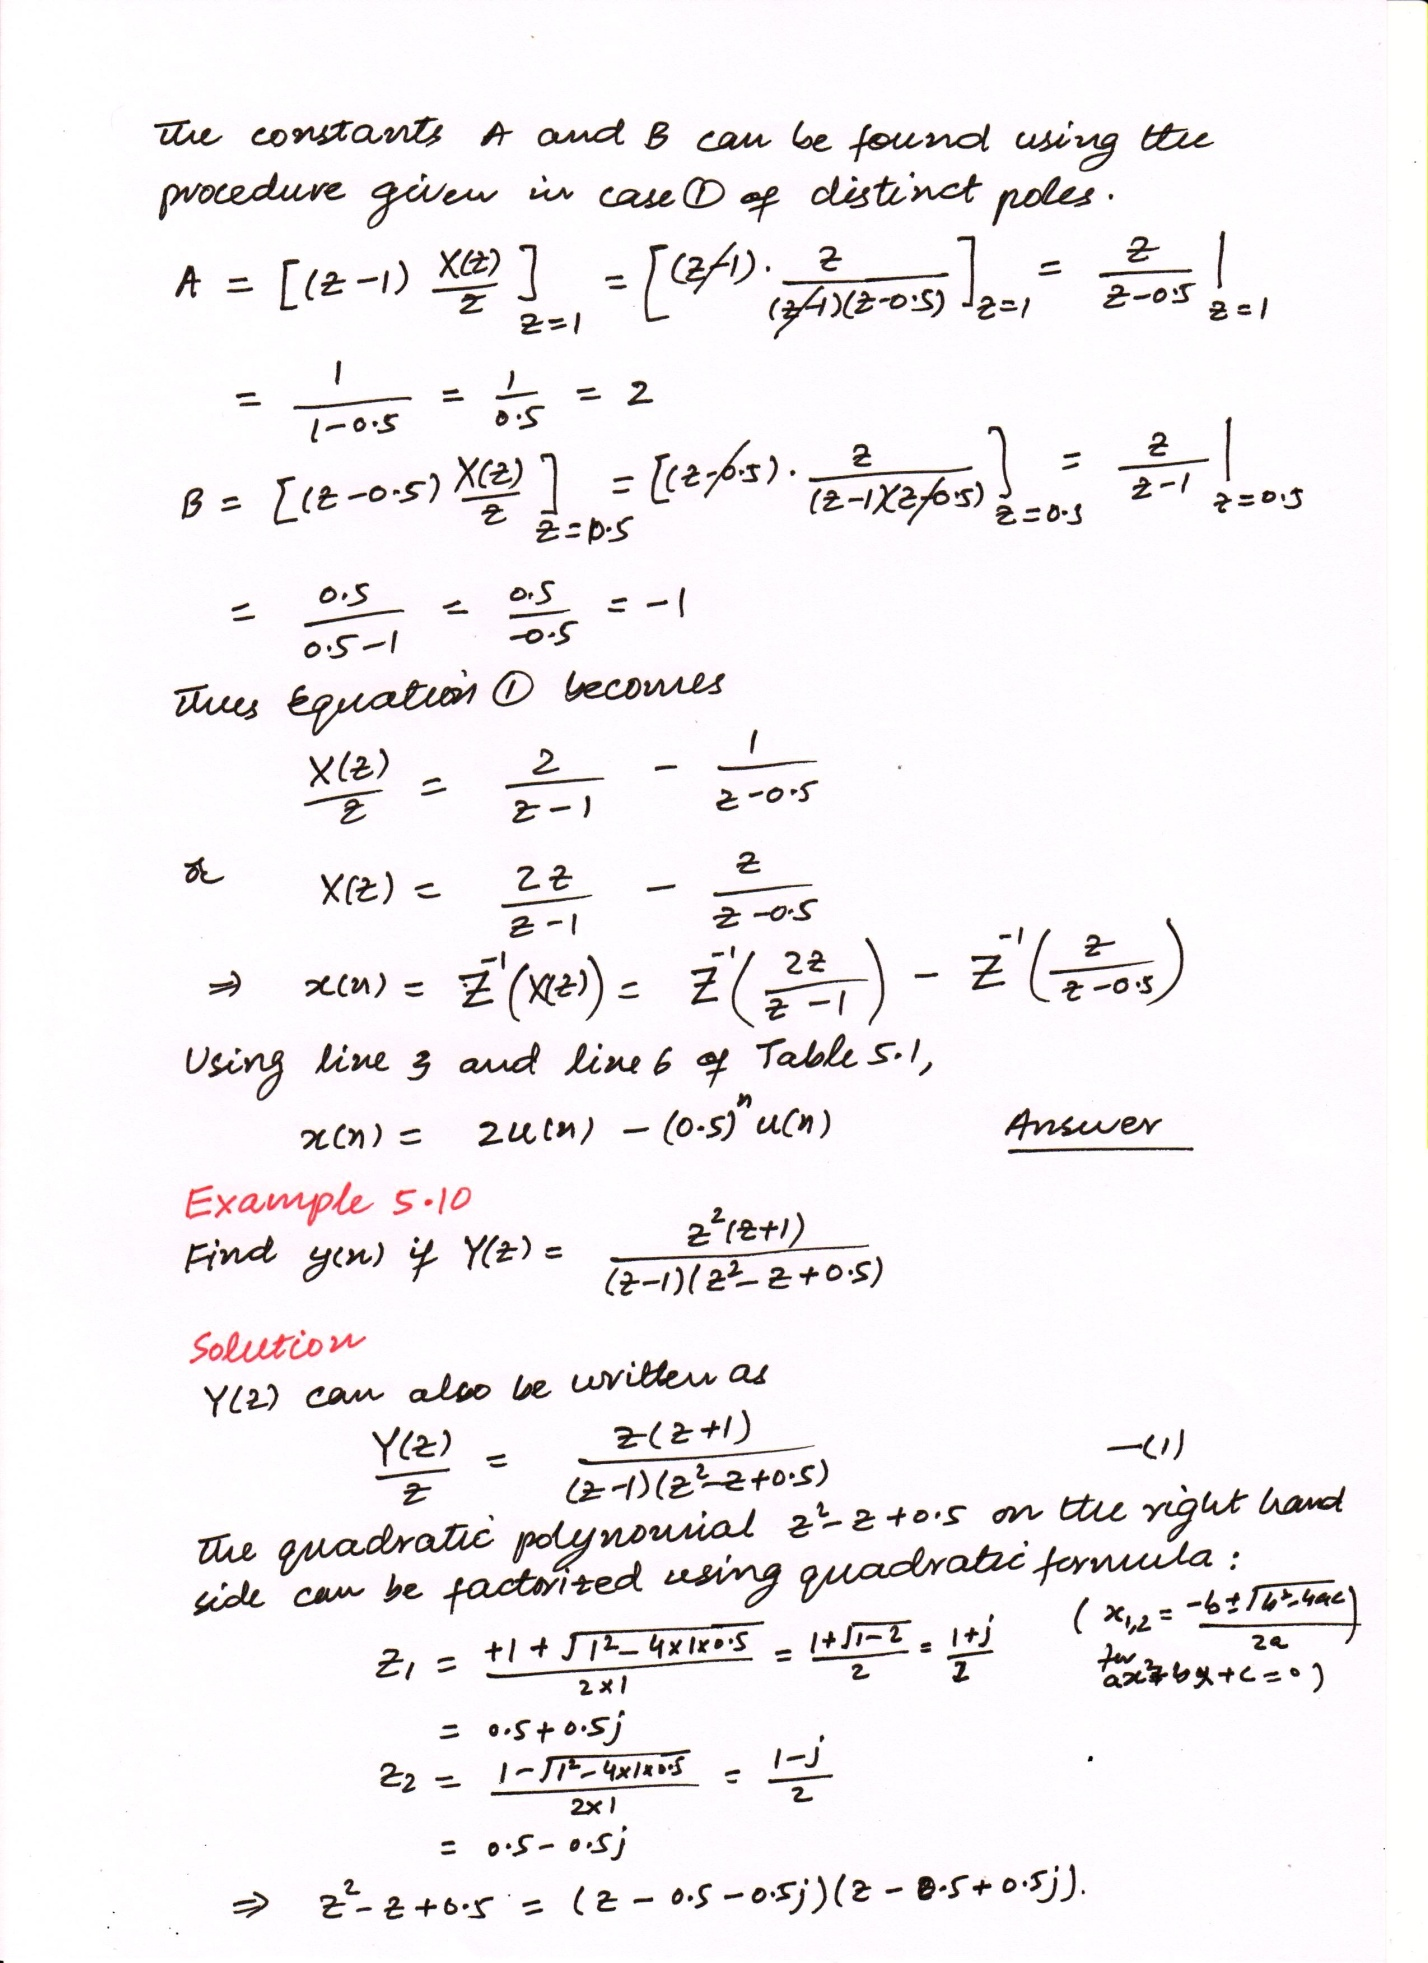 The constants A and B can be found using the
procedure given in case ① of distinct poles.
A = [(z-1) X(z)/z]_{z=1} = [(z-1) · z/((z-1)(z-0.5))]_{z=1} = z/(z-0.5) |_{z=1}
= 1/(1-0.5) = 1/0.5 = 2
B = [(z-0.5) X(z)/z]_{z=0.5} = [(z-0.5) · z/((z-1)(z-0.5))]_{z=0.5} = z/(z-1) |_{z=0.5}
= 0.5/(0.5-1) = 0.5/-0.5 = -1
Thus Equation ① becomes
X(z)/z = 2/(z-1) - 1/(z-0.5)
or X(z) = 2z/(z-1) - z/(z-0.5)
⇒ x(n) = Z⁻¹(X(z)) = Z⁻¹(2z/(z-1)) - Z⁻¹(z/(z-0.5))
Using line 3 and line 6 of Table 5.1,
x(n) = 2u(n) - (0.5)ⁿ u(n) Answer
Example 5.10
Find y(n) if Y(z) = z²(z+1)/((z-1)(z²-z+0.5))
Solution
Y(z) can also be written as
Y(z)/z = z(z+1)/((z-1)(z²-z+0.5)) —(1)
The quadratic polynomial z²-z+0.5 on the right hand
side can be factorized using quadratic formula:
z₁ = (+1+√(1²-4×1×0.5))/(2×1) = (1+√(1-2))/2 = (1+j)/2 (x₁,₂ = (-b±√(b²-4ac))/2a
for ax²+bx+c=0)
= 0.5+0.5j
z₂ = (1-√(1²-4×1×0.5))/(2×1) = (1-j)/2
= 0.5-0.5j
⇒ z²-z+0.5 = (z-0.5-0.5j)(z-0.5+0.5j).